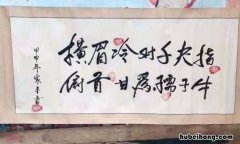 横眉冷对千夫指
俯首甘為孺子牛
甲申年
hubeihong.com